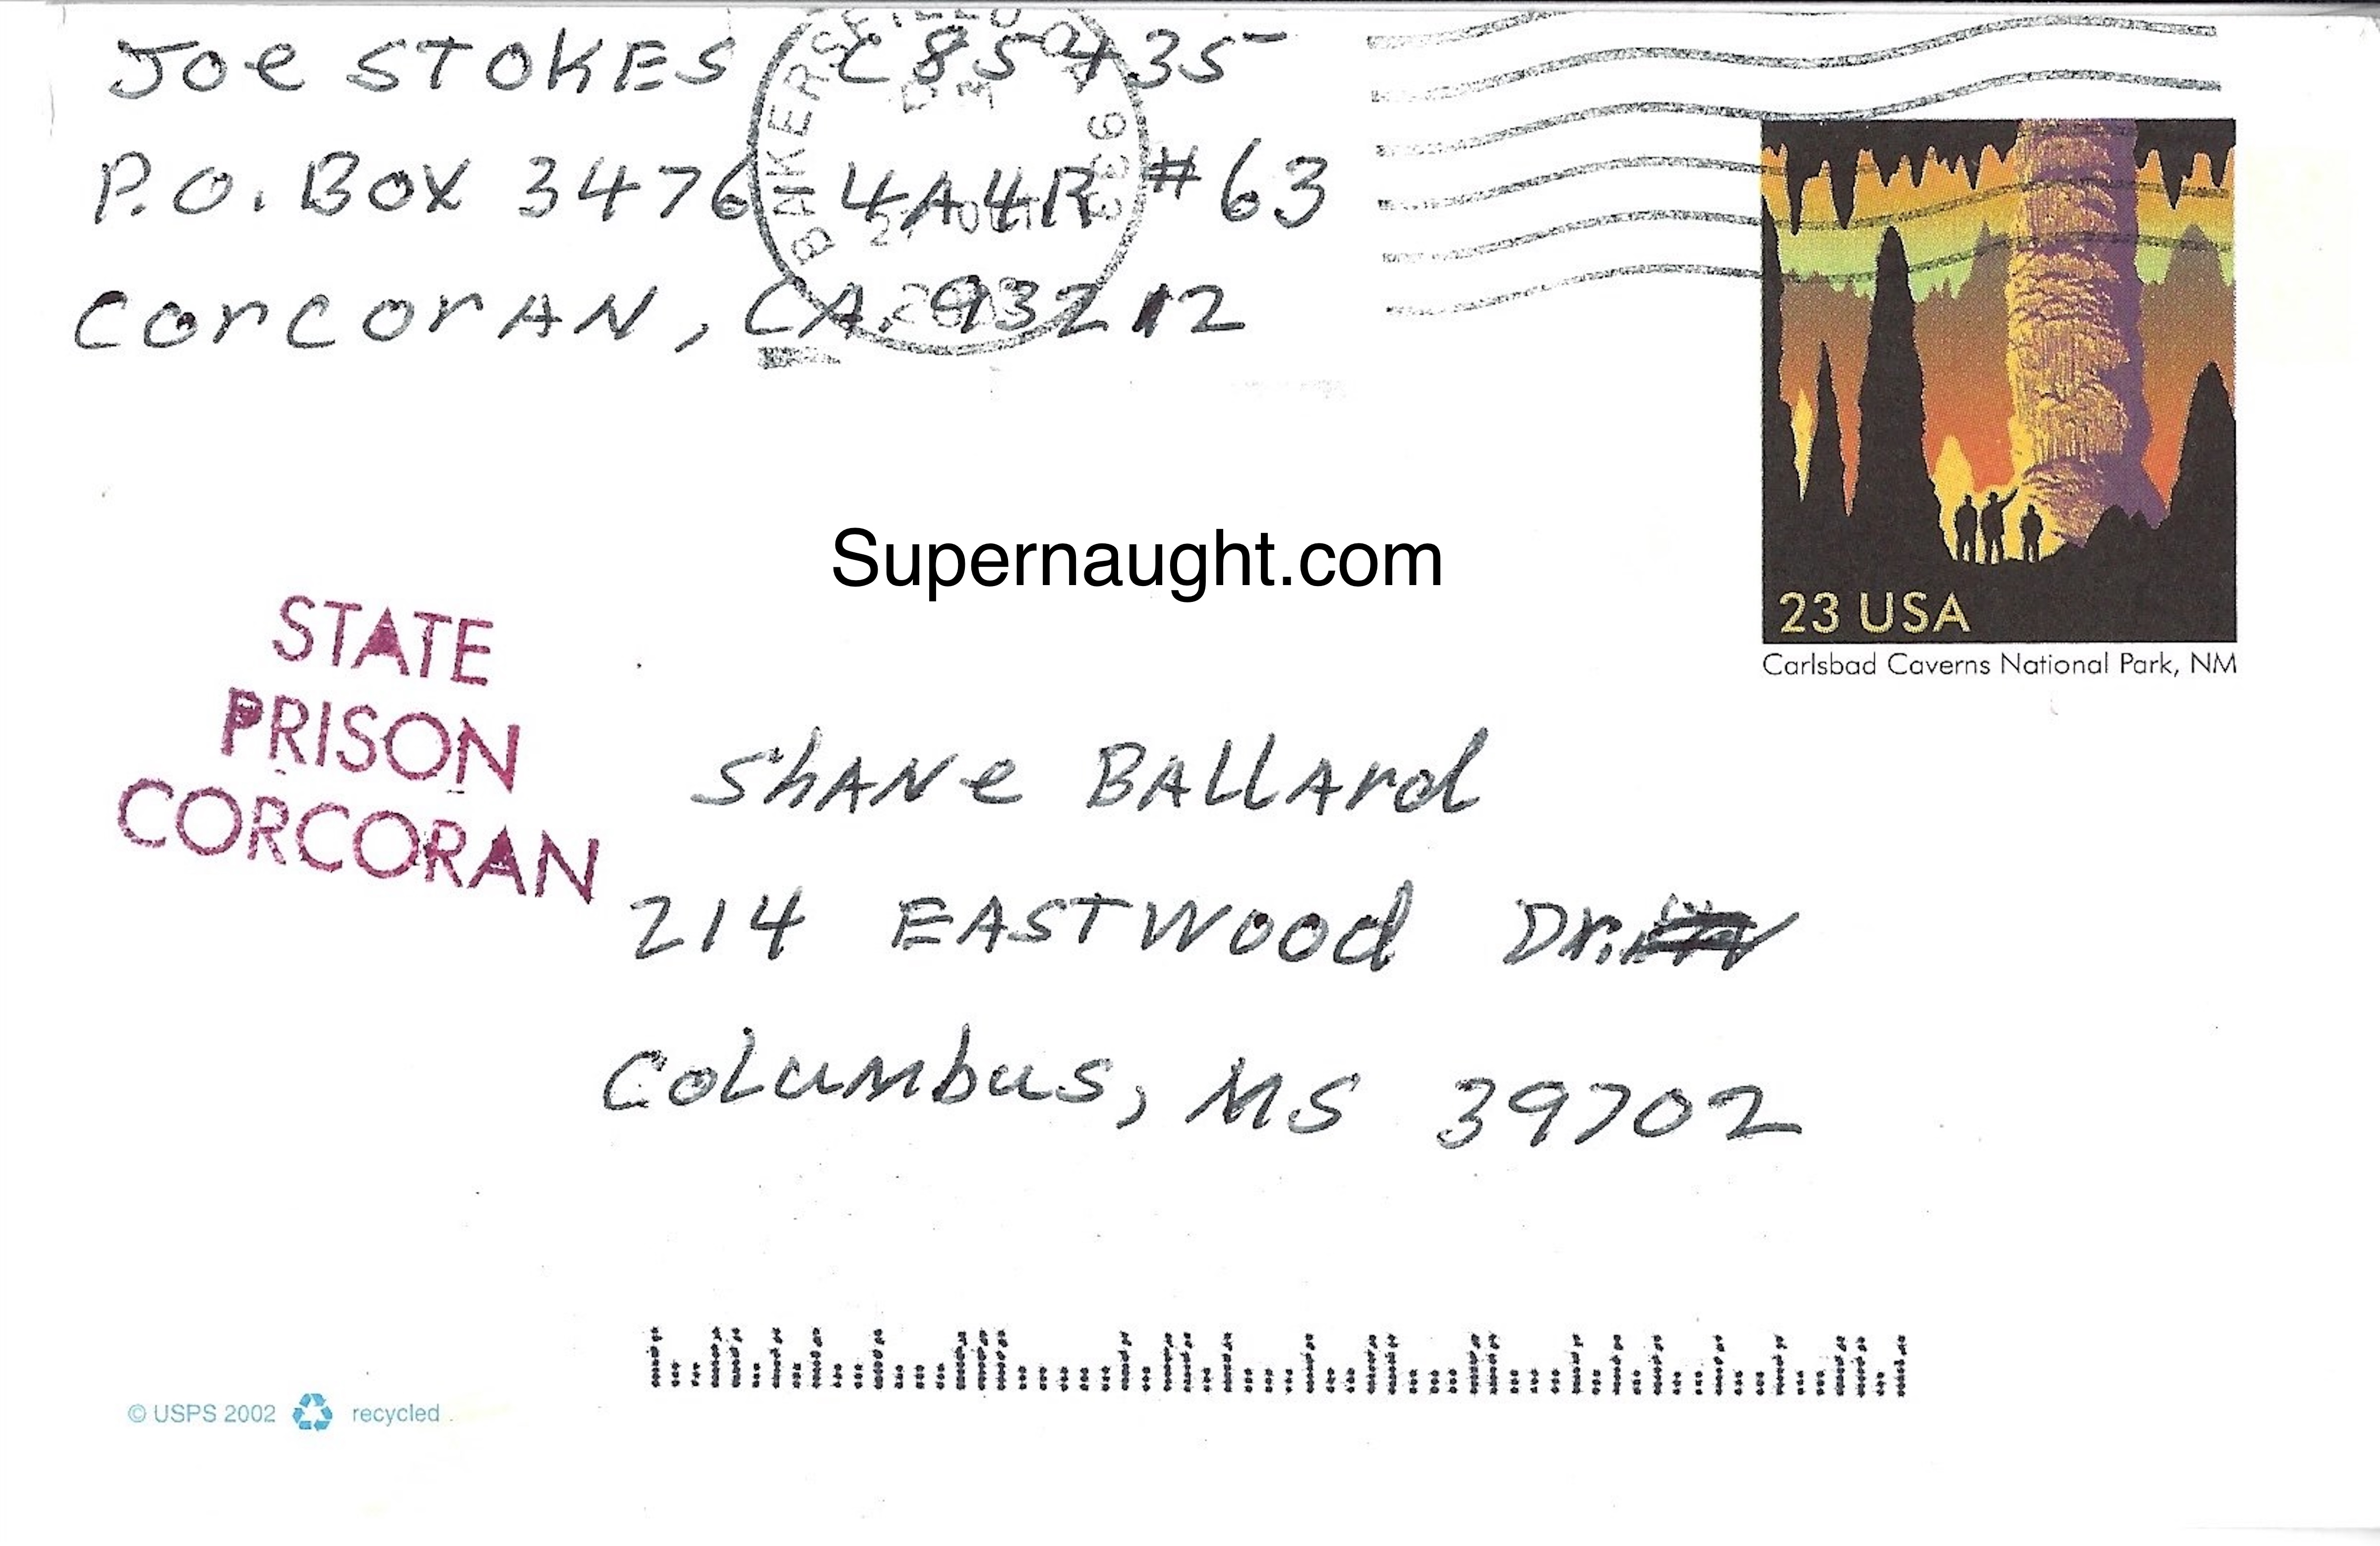 Joe STOKES C85435
P.O. Box 3476 4A4R #63
CorcorAN, CA. 93212
BAKERSFIELD
23 USA
Carlsbad Caverns National Park, NM
Supernaught.com
STATE
PRISON
CORCORAN
ShANe BALLArd
214 EASTWood Dr.
Columbus, MS 39702
© USPS 2002 recycled